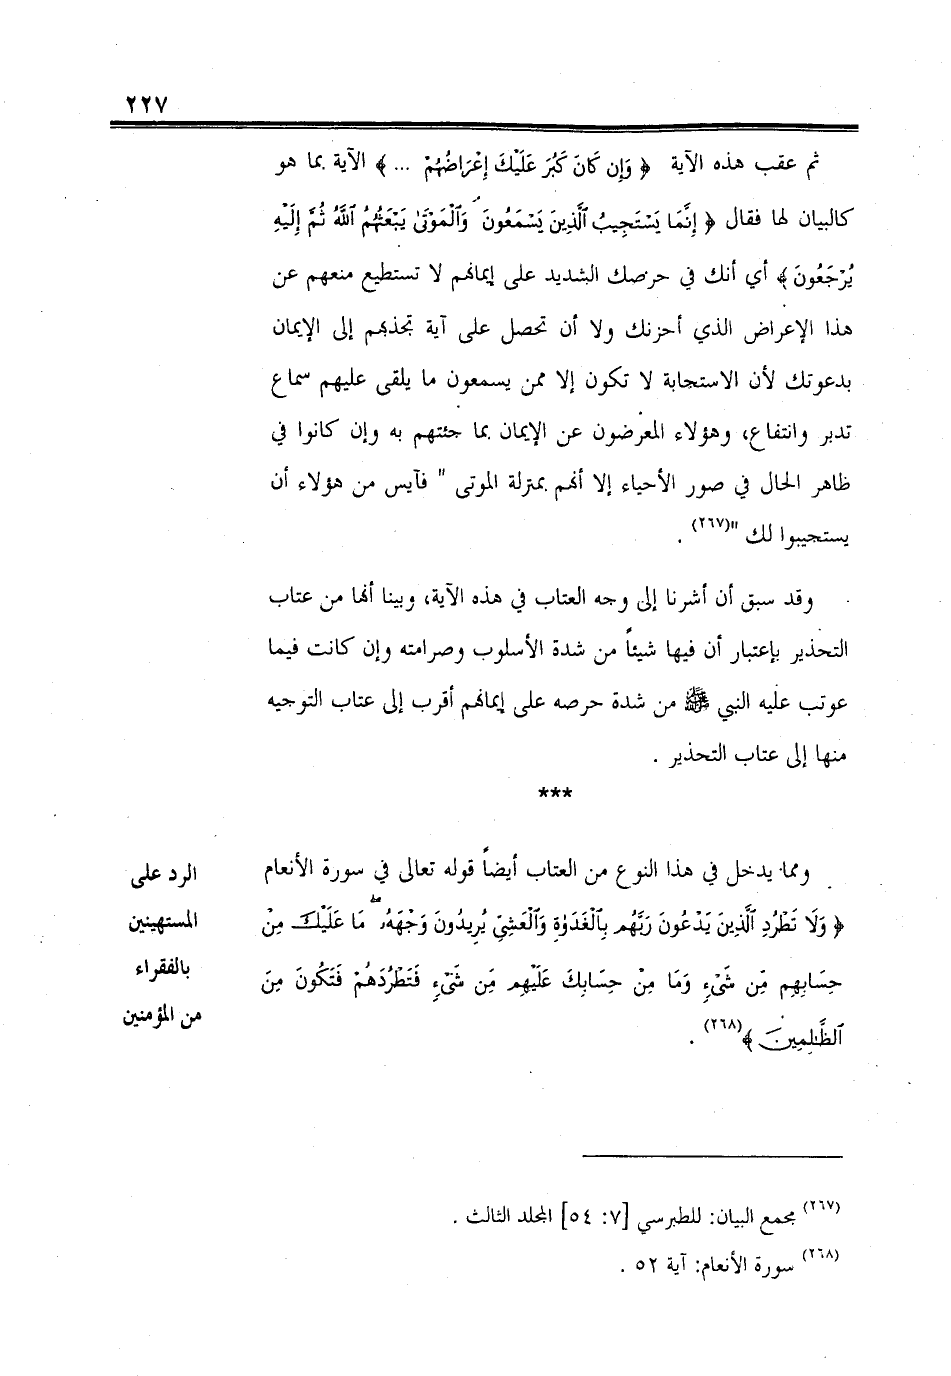 ٢٢٧
ثم عقب هذه الآية ﴿ وَإِن كَانَ كَبُرَ عَلَيْكَ إِعْرَاضُهُمْ ... ﴾ الآية بما هو
كالبيان لها فقال ﴿ إِنَّمَا يَسْتَجِيبُ ٱلَّذِينَ يَسْمَعُونَ ۘ وَٱلْمَوْتَىٰ يَبْعَثُهُمُ ٱللَّهُ ثُمَّ إِلَيْهِ
يُرْجَعُونَ ﴾ أي أنك في حرصك الشديد على إيمانهم لا تستطيع منعهم عن
هذا الإعراض الذي أحزنك ولا أن تحصل على آية تجذبهم إلى الإيمان
بدعوتك لأن الاستجابة لا تكون إلا ممن يسمعون ما يلقى عليهم سماع
تدبر وانتفاع، وهؤلاء المعرضون عن الإيمان بما جئتهم به وإن كانوا في
ظاهر الحال في صور الأحياء إلا أنهم بمنزلة الموتى " فآيس من هؤلاء أن
يستجيبوا لك "(٢٦٧) .
وقد سبق أن أشرنا إلى وجه العتاب في هذه الآية، وبينا أنها من عتاب
التحذير بإعتبار أن فيها شيئاً من شدة الأسلوب وصرامته وإن كانت فيما
عوتب عليه النبي ﷺ من شدة حرصه على إيمانهم أقرب إلى عتاب التوجيه
منها إلى عتاب التحذير .
***
ومما يدخل في هذا النوع من العتاب أيضاً قوله تعالى في سورة الأنعام
﴿ وَلَا تَطْرُدِ ٱلَّذِينَ يَدْعُونَ رَبَّهُم بِٱلْغَدَوٰةِ وَٱلْعَشِىِّ يُرِيدُونَ وَجْهَهُۥ ۖ مَا عَلَيْكَ مِنْ
حِسَابِهِم مِّن شَىْءٍ وَمَا مِنْ حِسَابِكَ عَلَيْهِم مِّن شَىْءٍ فَتَطْرُدَهُمْ فَتَكُونَ مِنَ
ٱلظَّـٰلِمِينَ ﴾(٢٦٨) .
الرد على
المستهينين
بالفقراء
من المؤمنين
(٢٦٧) مجمع البيان: للطبرسي [٧: ٥٤] المجلد الثالث .
(٢٦٨) سورة الأنعام: آية ٥٢ .